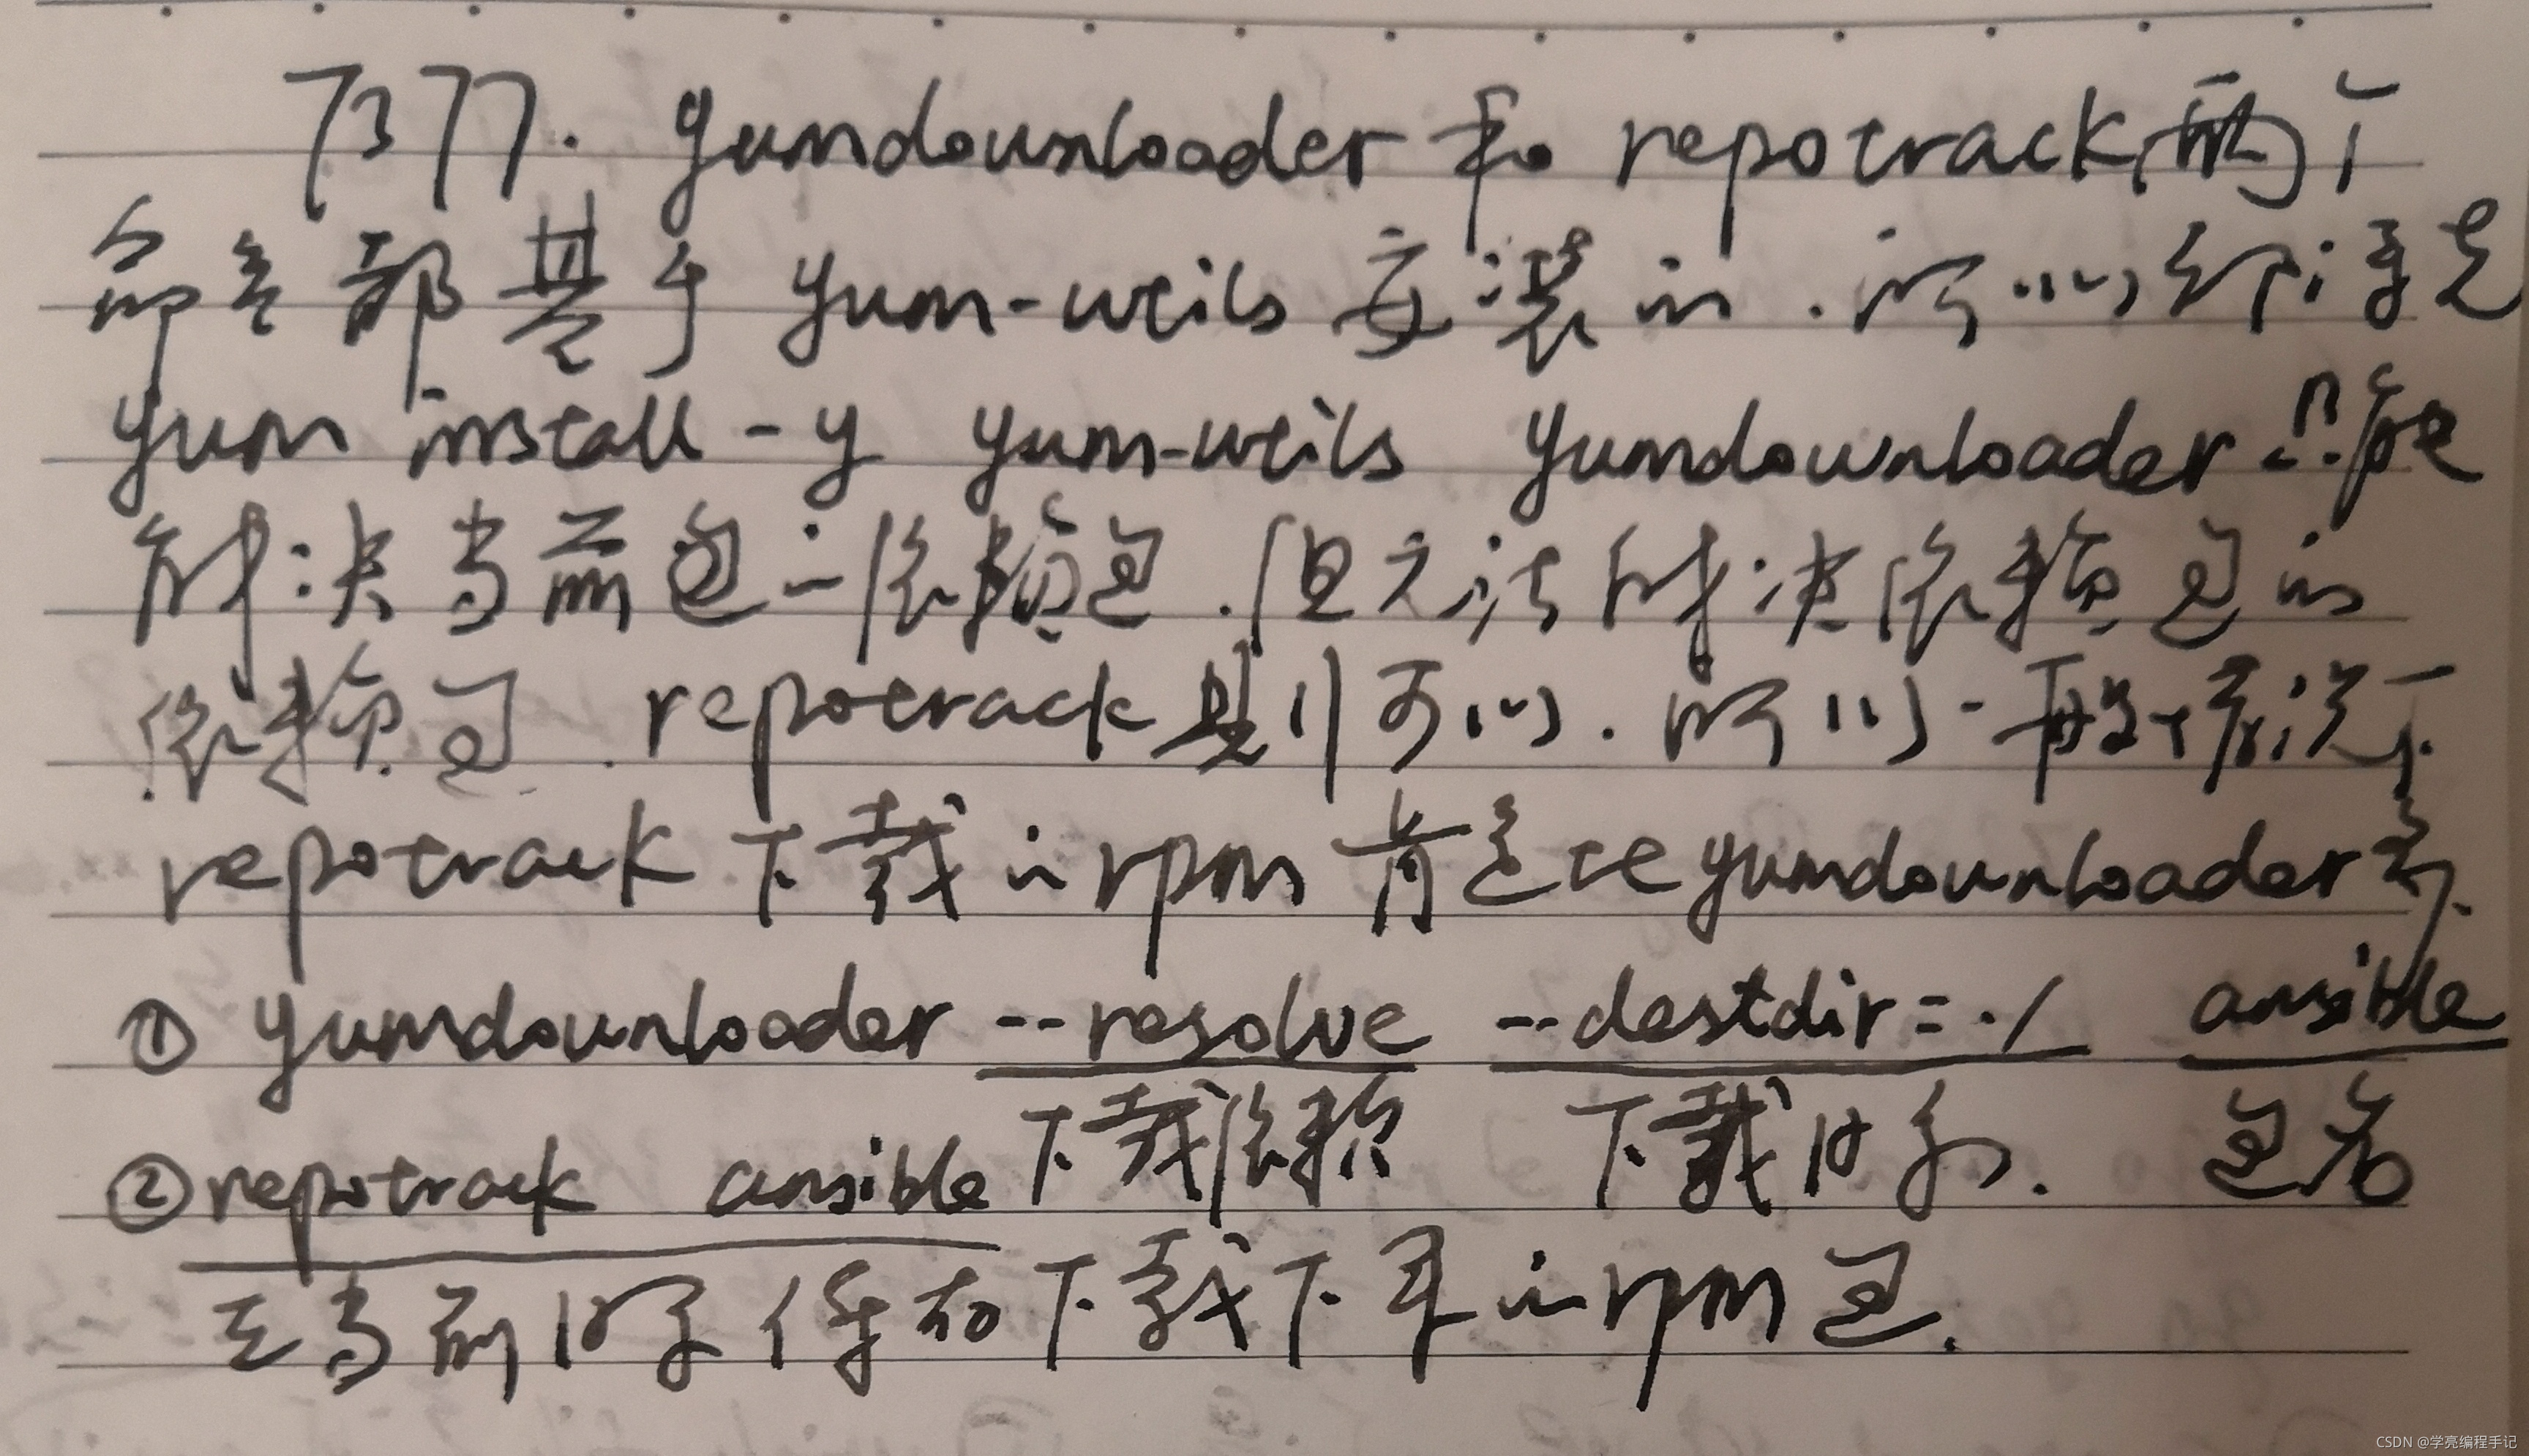 7377. yumdownloader 和 repotrack 两个
命令都基于 yum-utils 安装的. 所以都得先
yum install -y yum-utils yumdownloader 只能
解决当前包的依赖包. 但无法解决依赖包的
依赖包. repotrack 则可以. 所以一般情况下
repotrack 下载的rpm 肯定比 yumdownloader 多.
① yumdownloader --resolve --destdir=./ ansible
下载依赖 下载目录. 包名
② repotrack ansible
在当前目录保存下载下来的rpm包.
CSDN @学亮编程手记